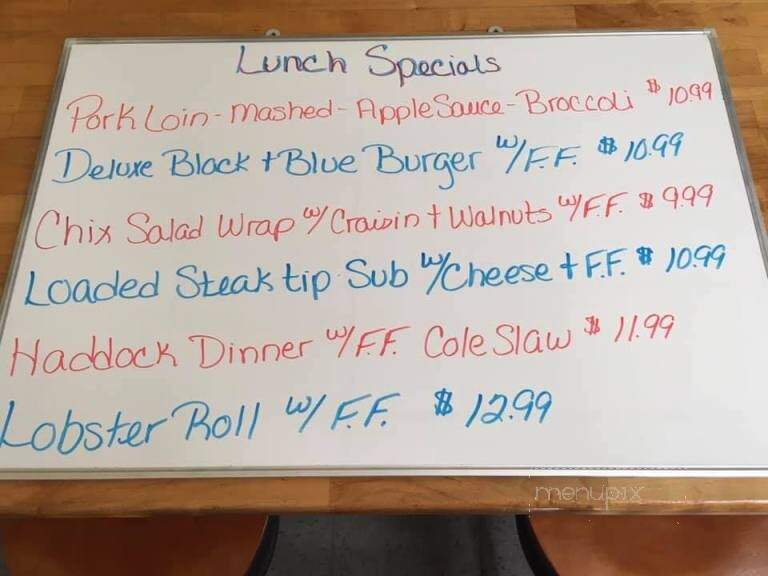 Lunch Specials
Pork Loin - Mashed - Apple Sauce - Broccoli $ 10.99
Deluxe Black + Blue Burger w/ F.F. $ 10.99
Chix Salad Wrap w/ Craisin + Walnuts w/ F.F. $ 9.99
Loaded Steak tip Sub w/ Cheese + F.F. $ 10.99
Haddock Dinner w/ F.F. Cole Slaw $ 11.99
Lobster Roll w/ F.F. $ 12.99
menupix